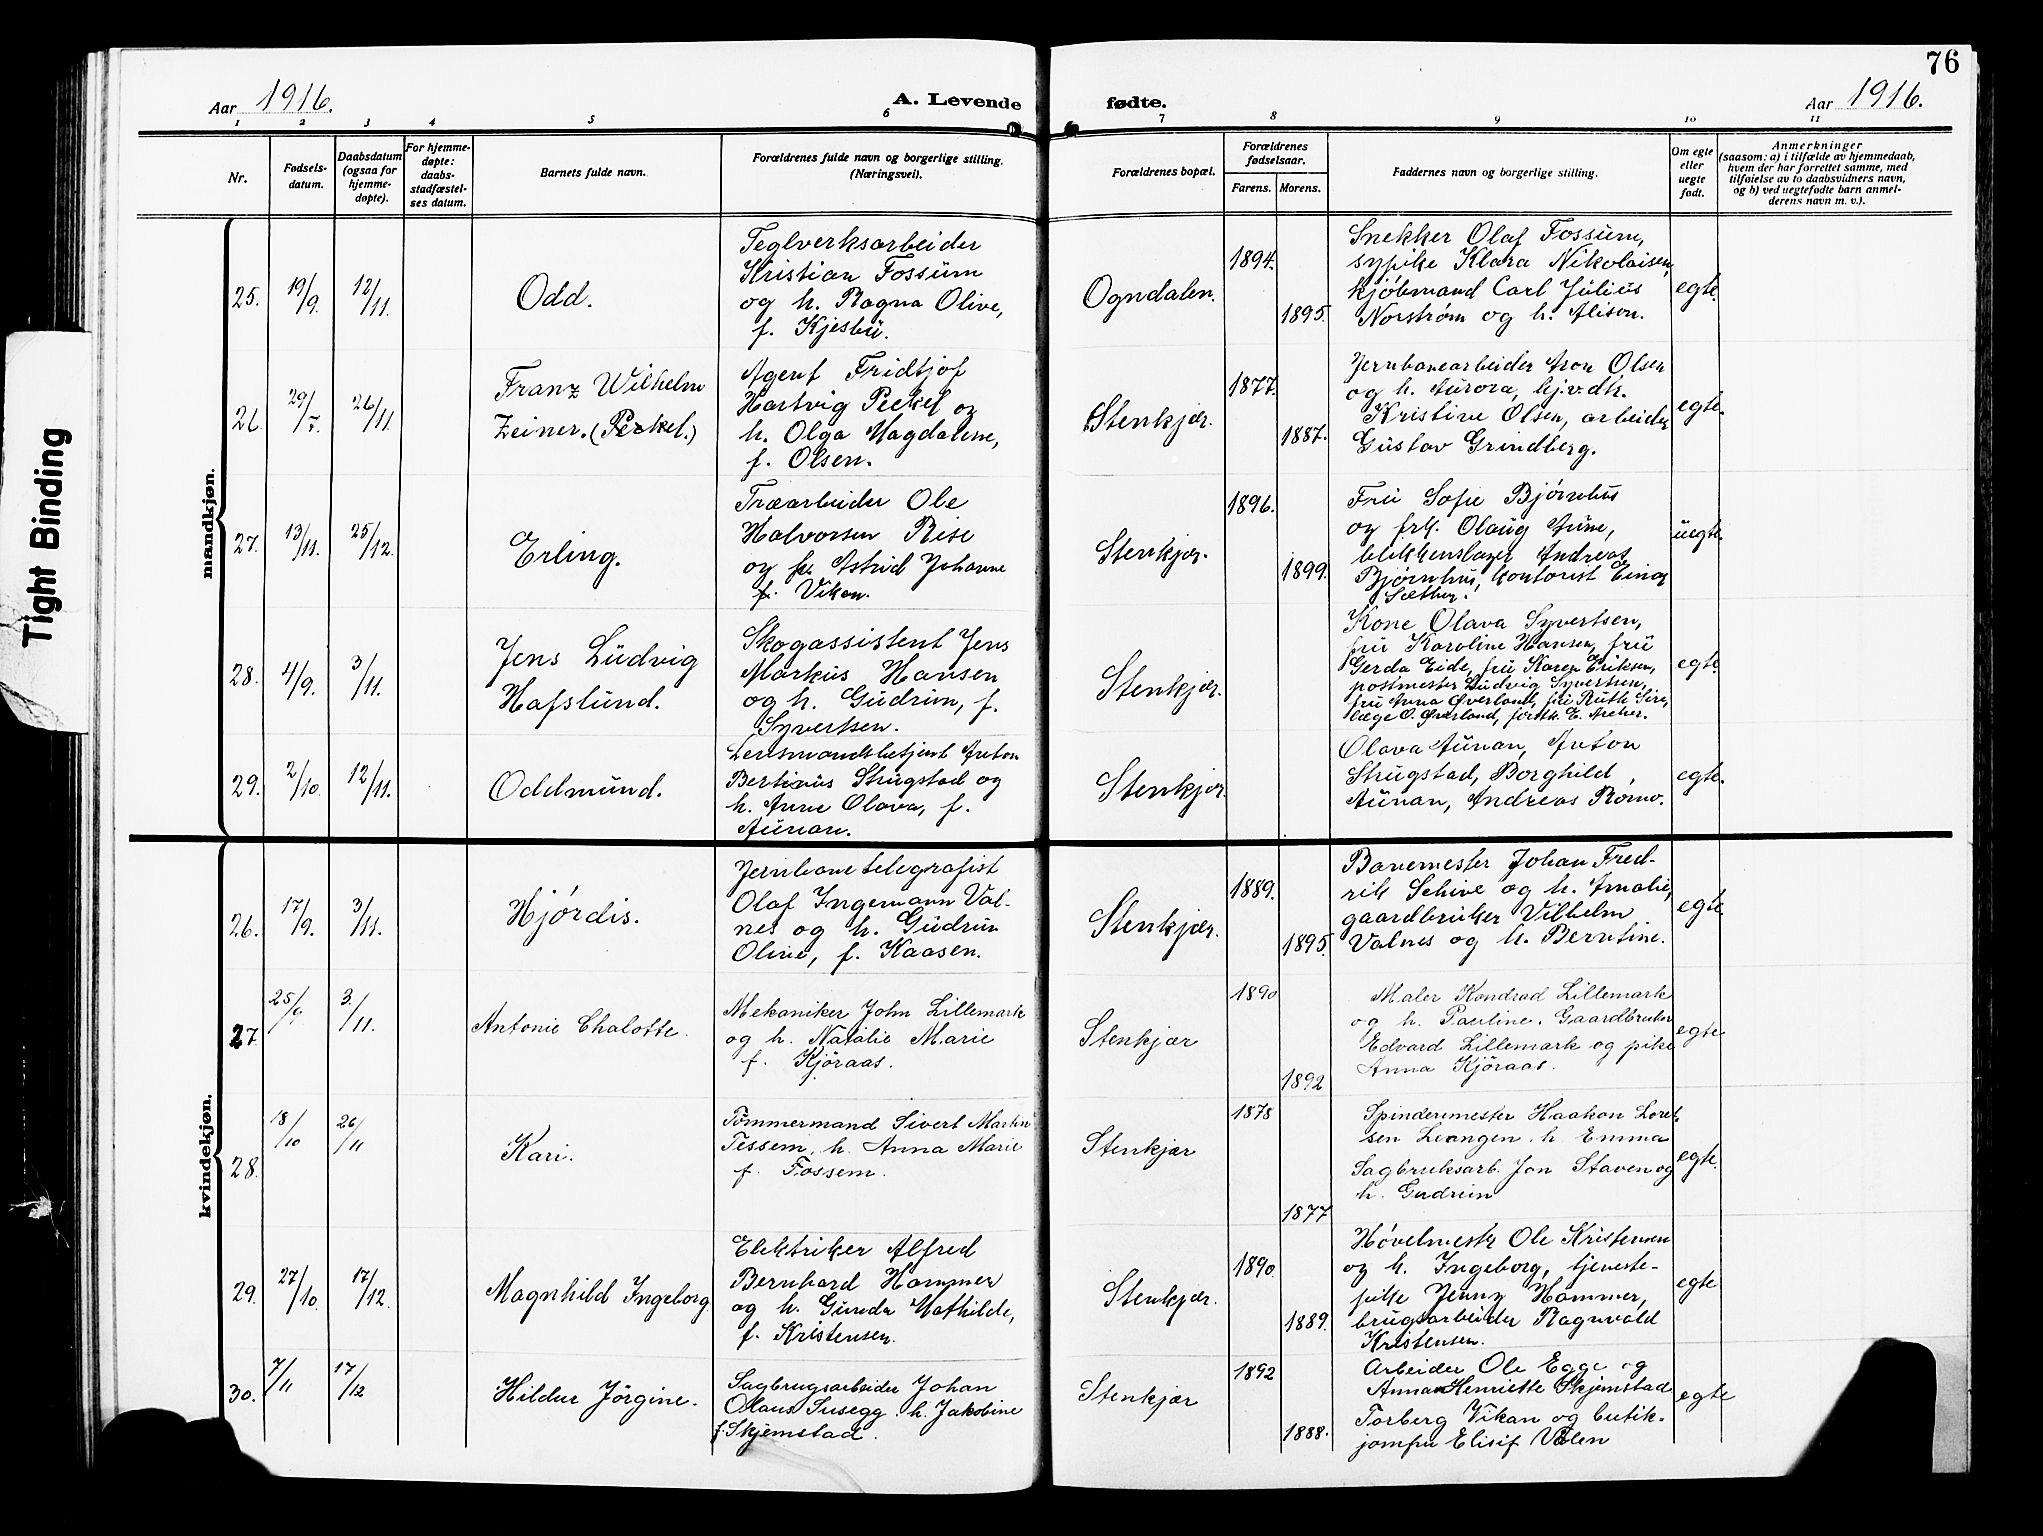 76
Aar 1916.
A. Levende fødte.
Aar 1916.
1 2 3 4 5 6 7 8 9 10 11
Nr.
Fødsels-
datum.
Daabsdatum
(ogsaa for
hjemme-
døpte).
For hjemme-
døpte:
daabs-
stadfæstel-
ses datum.
Barnets fulde navn.
Forældrenes fulde navn og borgerlige stilling.
(Næringsvei).
Forældrenes bopæl.
Forældrenes
fødselsaar.
Farens. Morens.
Faddernes navn og borgerlige stilling.
Om egte
eller
uegte
født.
Anmerkninger
(saasom: a) i tilfælde av hjemmedaab,
hvem der har forrettet samme, med
tilføielse av to daabsvidners navn,
og b) ved uegtefødte barn anmel-
derens navn m. v.).
Tight Binding
mandkjøn.
25. 19/9. 12/11. Odd.
Teglverksarbeider
Kristian Fossum
og h. Ragna Olive,
f. Kjesbu.
Ogndalen. 1894. 1895.
Snekker Olaf Fossum,
sypike Klara Nikolaisen,
kjøbmand Carl Julius
Norstrøm og h. Alison.
egte.
26. 29/7. 26/11.
Franz Wilhelm
Zeiner. (Peckel.)
Agent Fridtjof
Hartvig Peckel og
h. Olga Magdalene,
f. Olsen.
Stenkjær. 1877. 1887.
Jernbanearbeider Aron Olsen
og h. Aurora, hj.v.dtr.
Kristine Olsen, arbeider
Gustav Grindberg.
egte.
27. 13/11. 25/12. Erling.
Træarbeider Ole
Halvorsen Rise
og Astrid Johanne
f. Vikan.
Stenkjær. 1896. 1899.
Fru Sofie Bjørnhus
og frk. Olaug Aune,
blikkenslager Andreas
Bjørnhus, kontorist Einar
Sæther.
uegte.
28. 4/9. 3/11.
Jens Ludvig
Hafslund.
Skogassistent Jens
Markus Hansen
og h. Gudrun, f.
Syvertsen.
Stenkjær.
Kone Olava Syvertsen,
fru Karoline Hansen, fru
Gerda Eide, fru Karen Eriksen,
postmester Ludvig Syvertsen,
fru Anna Øverland, fru Ruth
læge O. Øverland, forstk. E. Archer.
egte.
29. 2/10. 12/11. Oddmund.
Lensmandsbetjent Anton
Bertinus Strugstad og
h. Anne Olava, f.
Aunan.
Stenkjær.
Olava Aunan, Anton
Strugstad, Borghild
Aunan, Andreas Romo.
egte.
kvindekjøn.
26. 17/9. 3/11. Hjørdis.
Jernbanetelegrafist
Olaf Ingemann Val-
nes og h. Gudrun
Oline, f. Kaasen.
Stenkjær. 1889. 1895.
Banemester Johan Fred-
rik Schive og h. Amalie,
gaardbruker Vilhelm
Valnes og h. Berntine.
egte.
27. 25/9 3/11. Antonie Chalotte.
Mekaniker John Lillemark
og h. Natalie Marie
f. Kjøraas.
Stenkjær 1890 1892
Maler Kondrad Lillemark
og h. Pauline. Gaardbruker
Edvard Lillemark og pike
Anna Kjøraas.
egte
28. 18/10 26/11 Kari.
Tømmermand Sivert Martin
Tessem, h. Anna Marie
f. Fossem.
Stenkjær 1878 1877
Spinderimester Haakon Loret-
sen Leangen. h. Emma
Sagbruksarb. Jon Staven og
h. Gudrun
egte.
29. 27/10. 17/12. Magnhild Ingeborg
Elektriker Alfred
Bernhard Hammer
og h. Gunda Mathilde,
f. Kristensen.
Stenkjær. 1890. 1889.
Høvelmester Ole Kristensen
og h. Ingeborg, tjeneste-
pike Jenny Hammer,
brugsarbeider Ragnvald
Kristensen.
egte
30. 7/11 17/12 Hildur Jørgine.
Sagbrugsarbeider Johan
Olaus Susegg h. Jakobine
f. Skjemstad.
Stenkjær 1892 1888.
Arbeider Ole Egge og
Anna Henriette Skjemstad
Torberg Vikan og butik-
jomfru Elisif Valen
egte